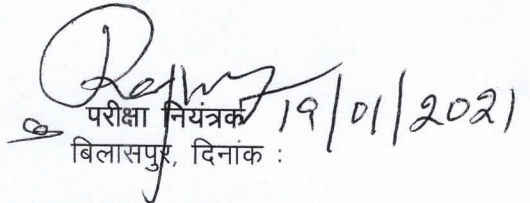 परीक्षा नियंत्रक 19/01/2021
बिलासपुर, दिनांक :